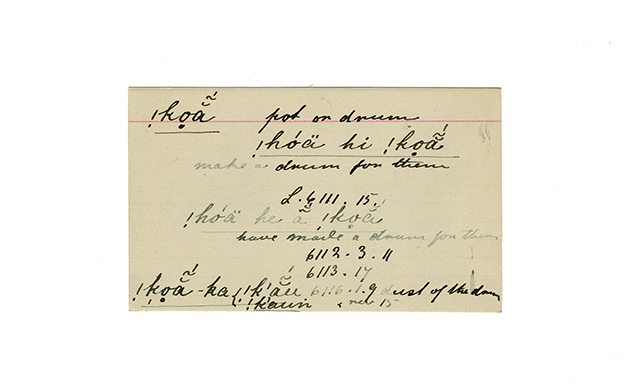 !kọã̋ pot or drum
!hóä hi !kọã̋
make a drum for them
L. 6111. 15.
!hóä he ã !kọã̋
have made a drum for them
6112. 3. 11
6113. 17
!kọã̋ - ka 6116. 1. 9 dust of the drum
!kauin rev. 15